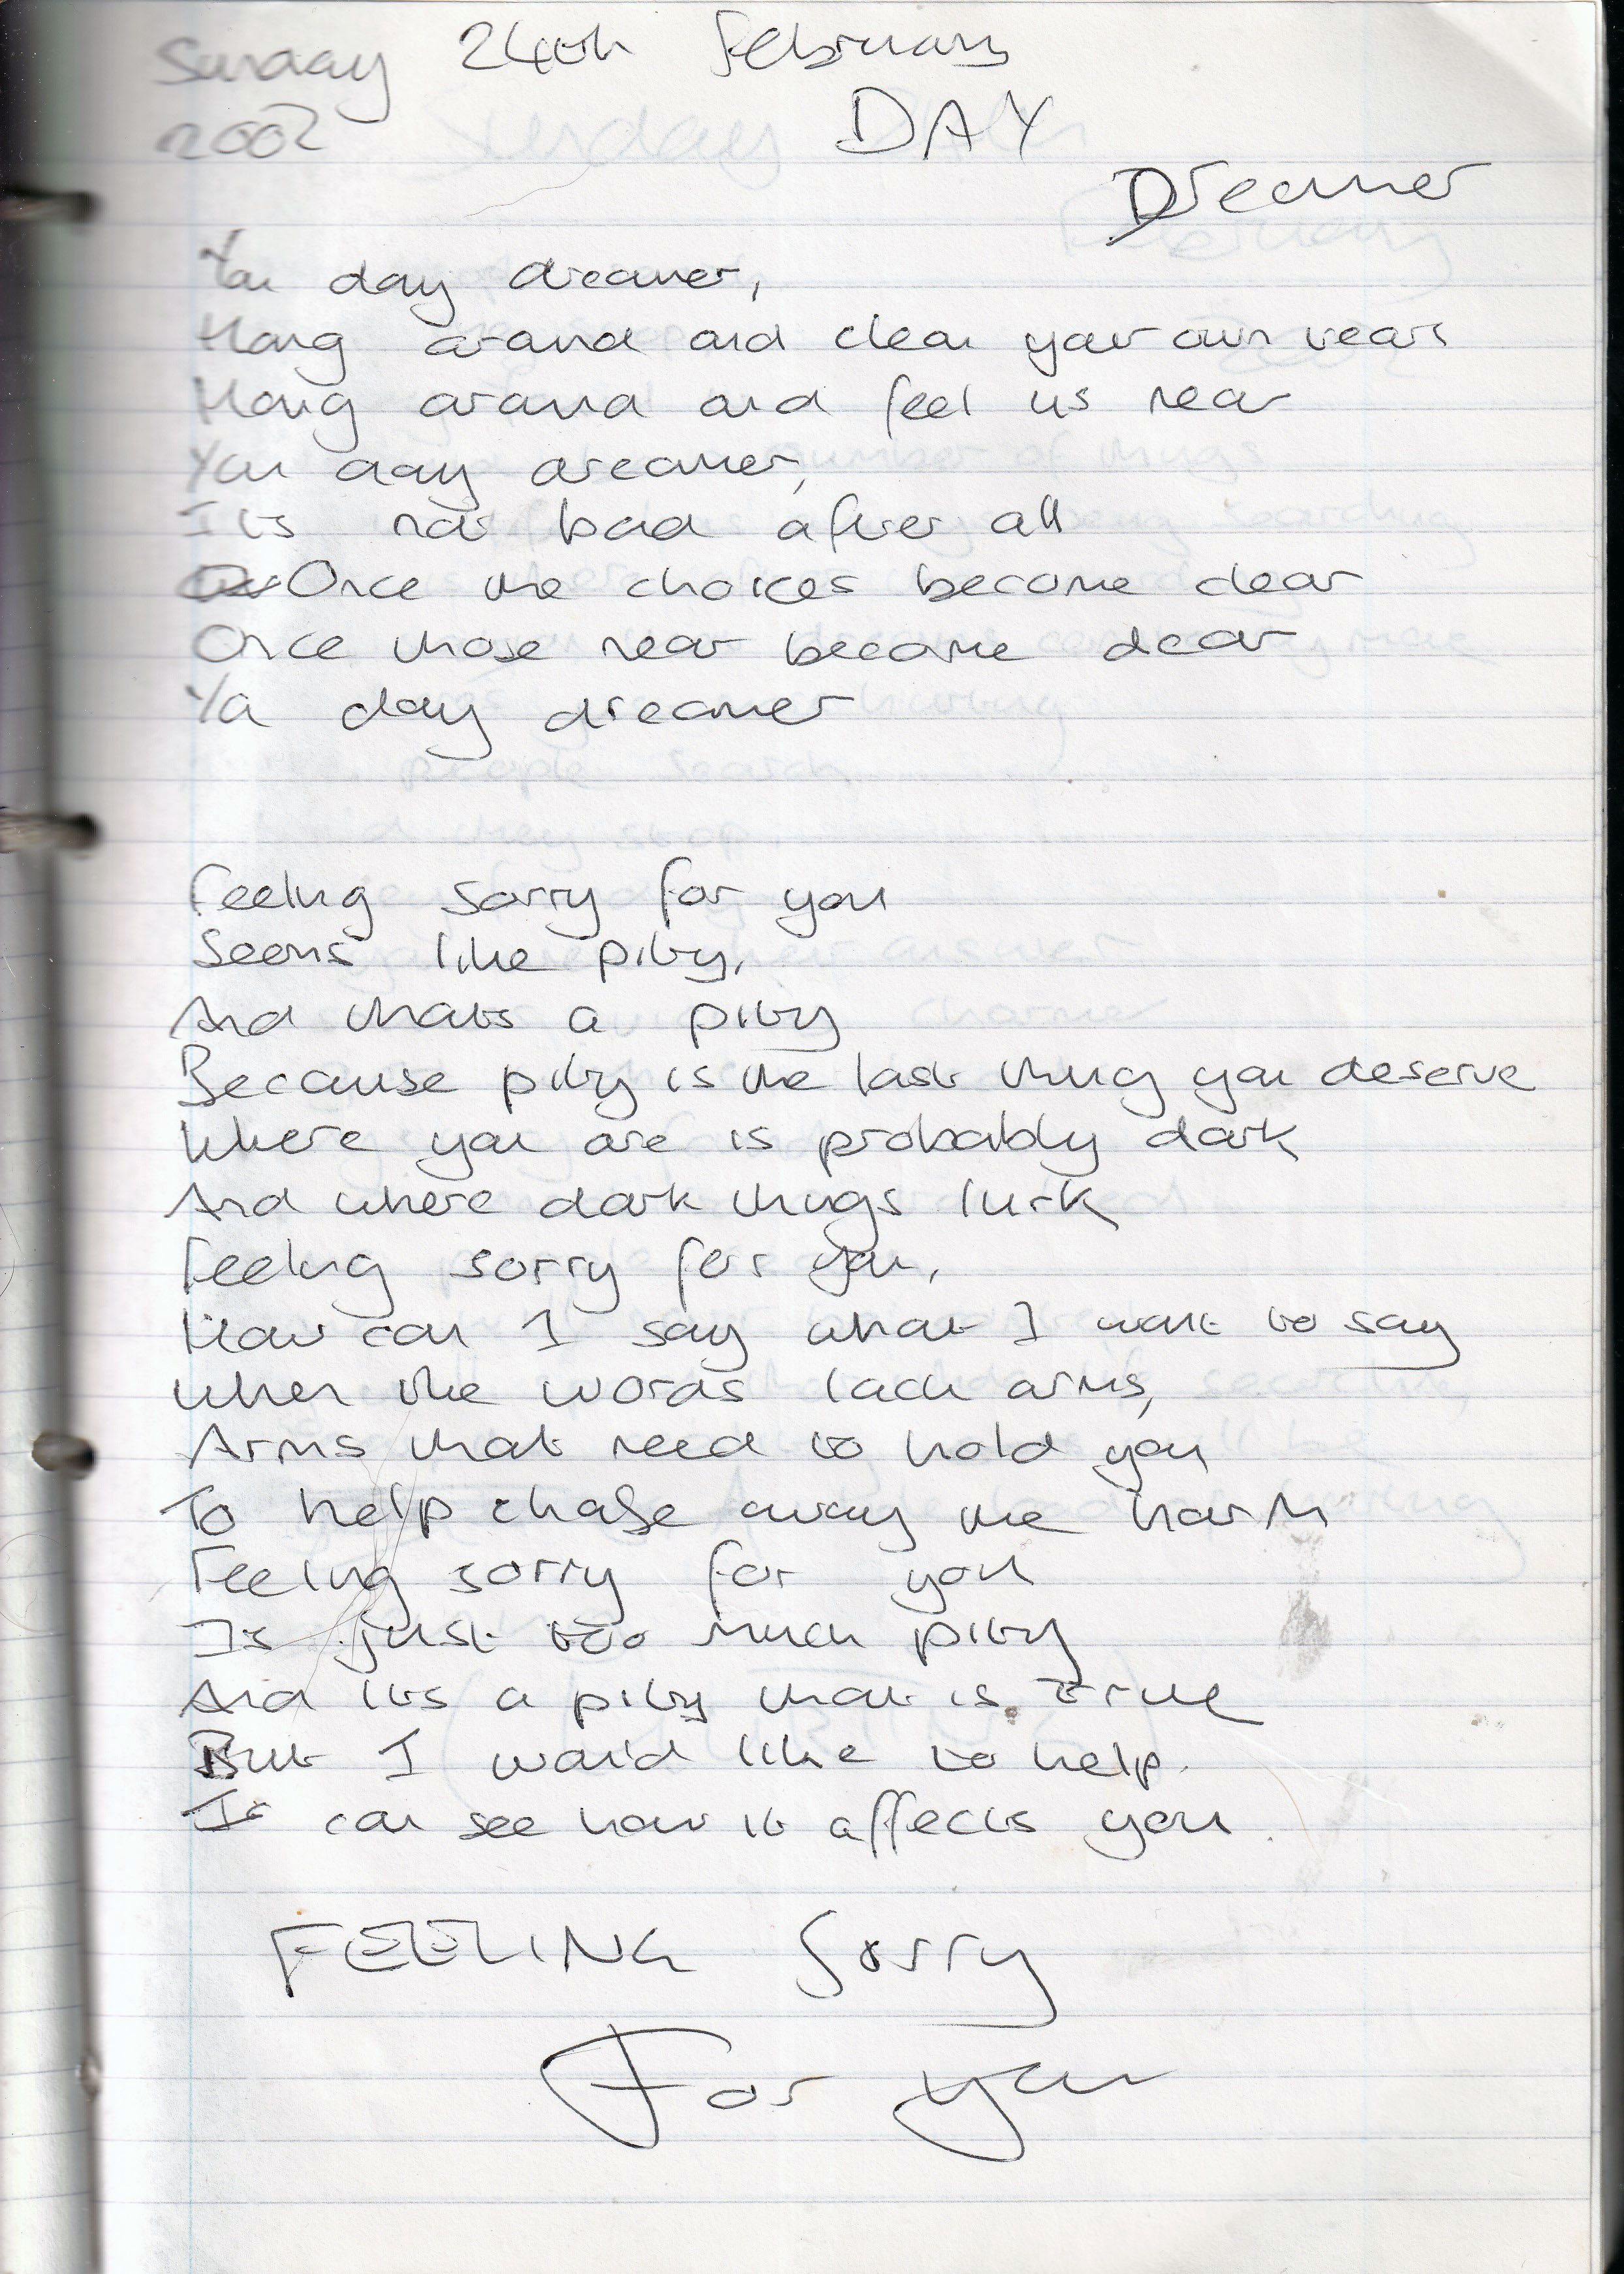 Sunday 24th February
2002
DAY
Dreamer
You day dreamer,
Hang around and clear your own
Hang around and feel us near
You day dreamer,
Its not bad after all
Once the choices become clear
Once those near become dear
Ya day dreamer
Feeling sorry for you
Seems like pity,
And thats a pity
Because pity is the last thing you deserve
Where you are is probably dark
And where dark things lurk
Feeling sorry for you,
How can I say what I want to say
when the words lack arms,
Arms that need to hold you
To help chase away the harm
Feeling sorry for you
Is just too much pity
And its a pity that is true
But I would like to help.
I can see how it affects you.
FEELING Sorry
For you